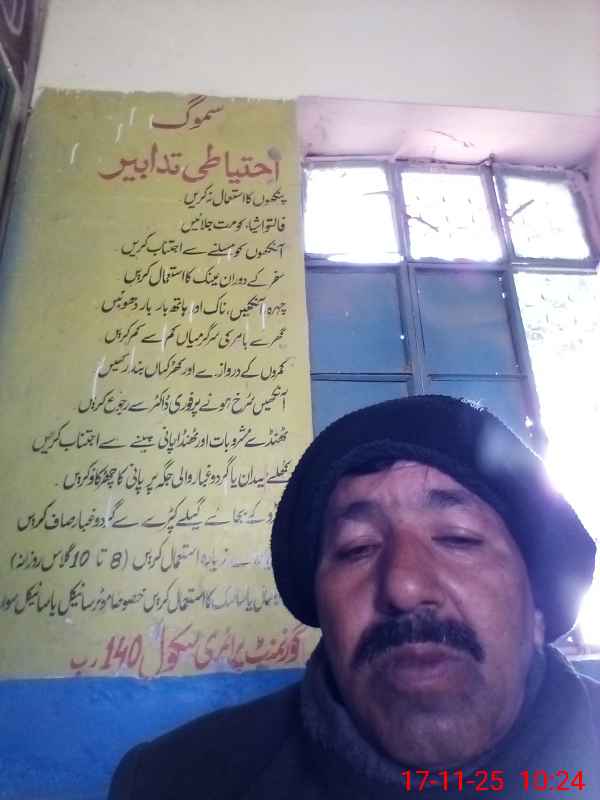 سموگ
احتیاطی تدابیر
پنکھوں کا استعمال نہ کریں
فالتو اشیاء کو مت جلائیں
آنکھوں کو مسلنے سے اجتناب کریں
سفر کے دوران عینک کا استعمال کریں
چہرہ، آنکھیں، ناک اور ہاتھ بار بار دھوئیں
گھر سے باہر کی سرگرمیاں کم سے کم کریں
کمروں کے دروازے اور کھڑکیاں بند رکھیں
آنکھیں سُرخ ہونے پر فوری ڈاکٹر سے رجوع کریں
ٹھنڈے مشروبات اور ٹھنڈا پانی پینے سے اجتناب کریں
کھلے میدان یا گرد و غبار والی جگہ پر پانی کا چھڑکاؤ کریں
کے بجائے گیلے کپڑے سے گرد و غبار صاف کریں
زیادہ استعمال کریں (8 تا 10 گلاس روزانہ)
یا ماسک کا استعمال کریں خصوصاً موٹر سائیکل یا سائیکل سوار
گورنمنٹ پرائمری سکول 140 رب
17-11-25 10:24